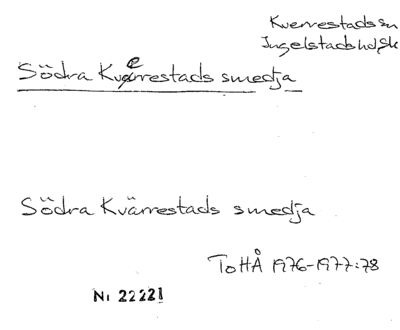 Kverrestads sn
Ingelstads hd, Sk
Södra Kverrestads smedja
Södra Kvärrestads smedja
ToHÅ 1976-1977:78
Nr 22221